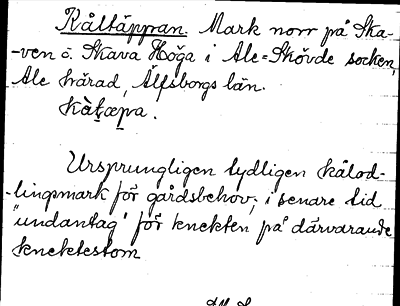 Kåltäppan. Mark norr på Ska-
-ven o. Skava Höga i Ale-Skövde socken,
Ale härad, Älfsborgs län.
Kàt̤æpa.
Ursprungligen tydligen kålod-
-lingsmark för gårdsbehov; i senare tid
"undantag" för knekten på därvarande
knektestom